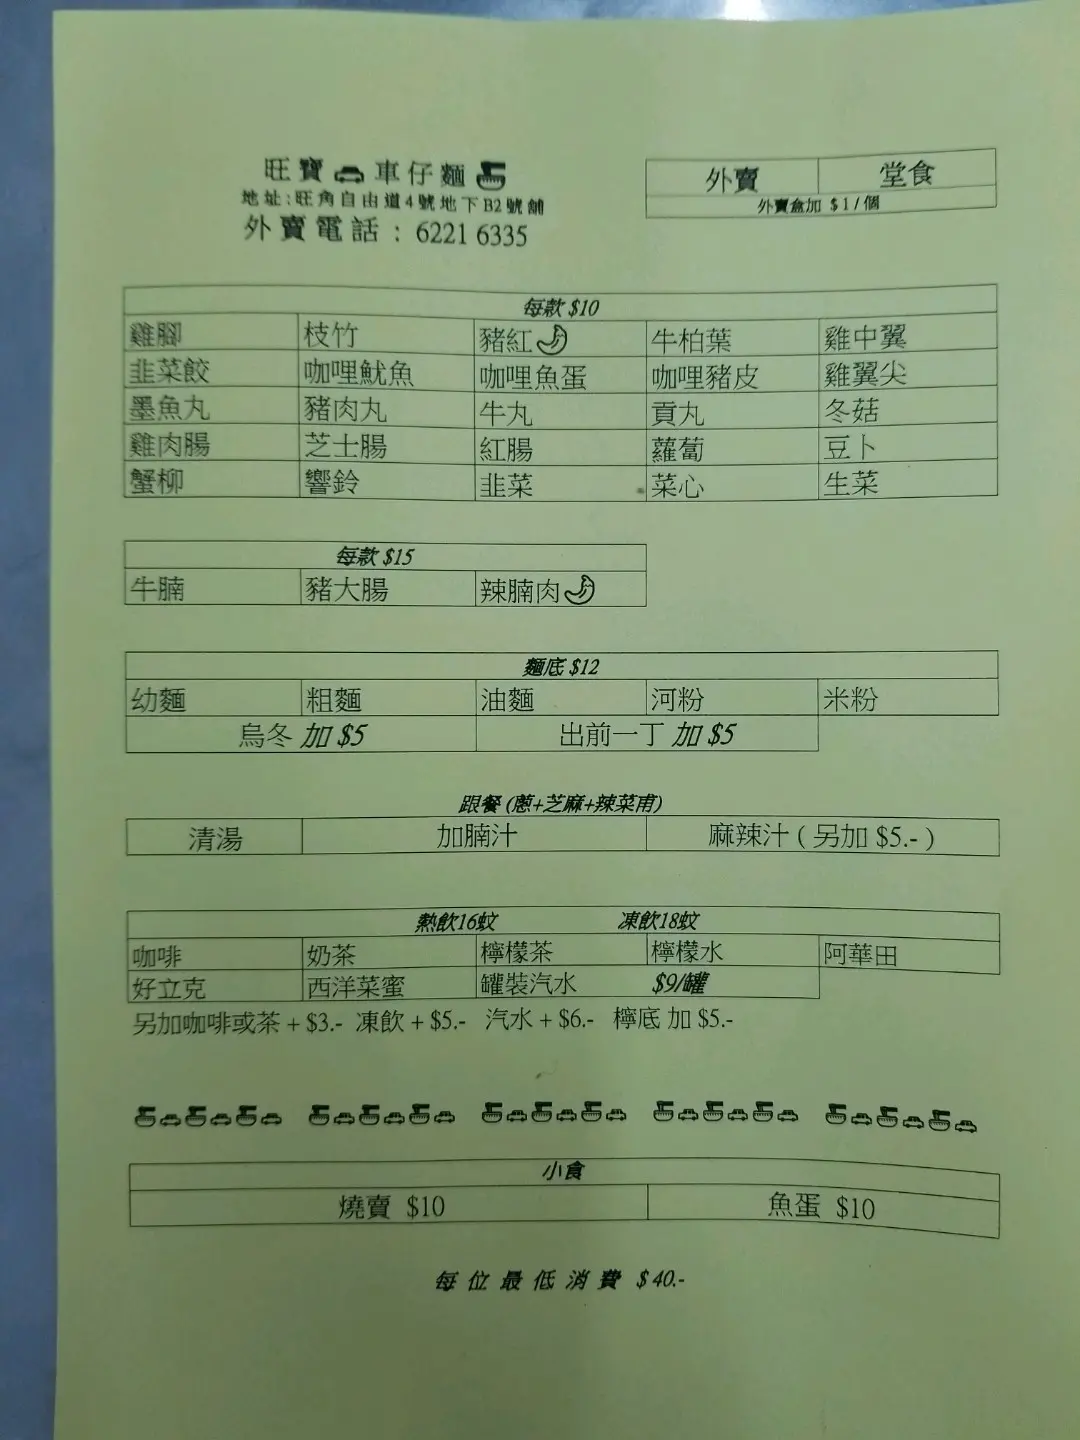 旺寶🚗車仔麵🍜
地址:旺角自由道4號地下B2號舖
外賣電話：6221 6335
外賣 堂食
外賣盒加 $1/個
每款 $10
雞腳 枝竹 豬紅🌶 牛柏葉 雞中翼
韭菜餃 咖哩魷魚 咖哩魚蛋 咖哩豬皮 雞翼尖
墨魚丸 豬肉丸 牛丸 貢丸 冬菇
雞肉腸 芝士腸 紅腸 蘿蔔 豆卜
蟹柳 響鈴 韭菜 菜心 生菜
每款 $15
牛腩 豬大腸 辣腩肉🌶
麵底 $12
幼麵 粗麵 油麵 河粉 米粉
烏冬 加 $5 出前一丁 加 $5
跟餐 (蔥+芝麻+辣菜甫)
清湯 加腩汁 麻辣汁 ( 另加 $5.- )
熱飲16蚊 凍飲18蚊
咖啡 奶茶 檸檬茶 檸檬水 阿華田
好立克 西洋菜蜜 罐裝汽水 $9/罐
另加咖啡或茶 + $3.- 凍飲 + $5.- 汽水 + $6.- 檸底 加 $5.-
小食
燒賣 $10 魚蛋 $10
每位最低消費 $40.-